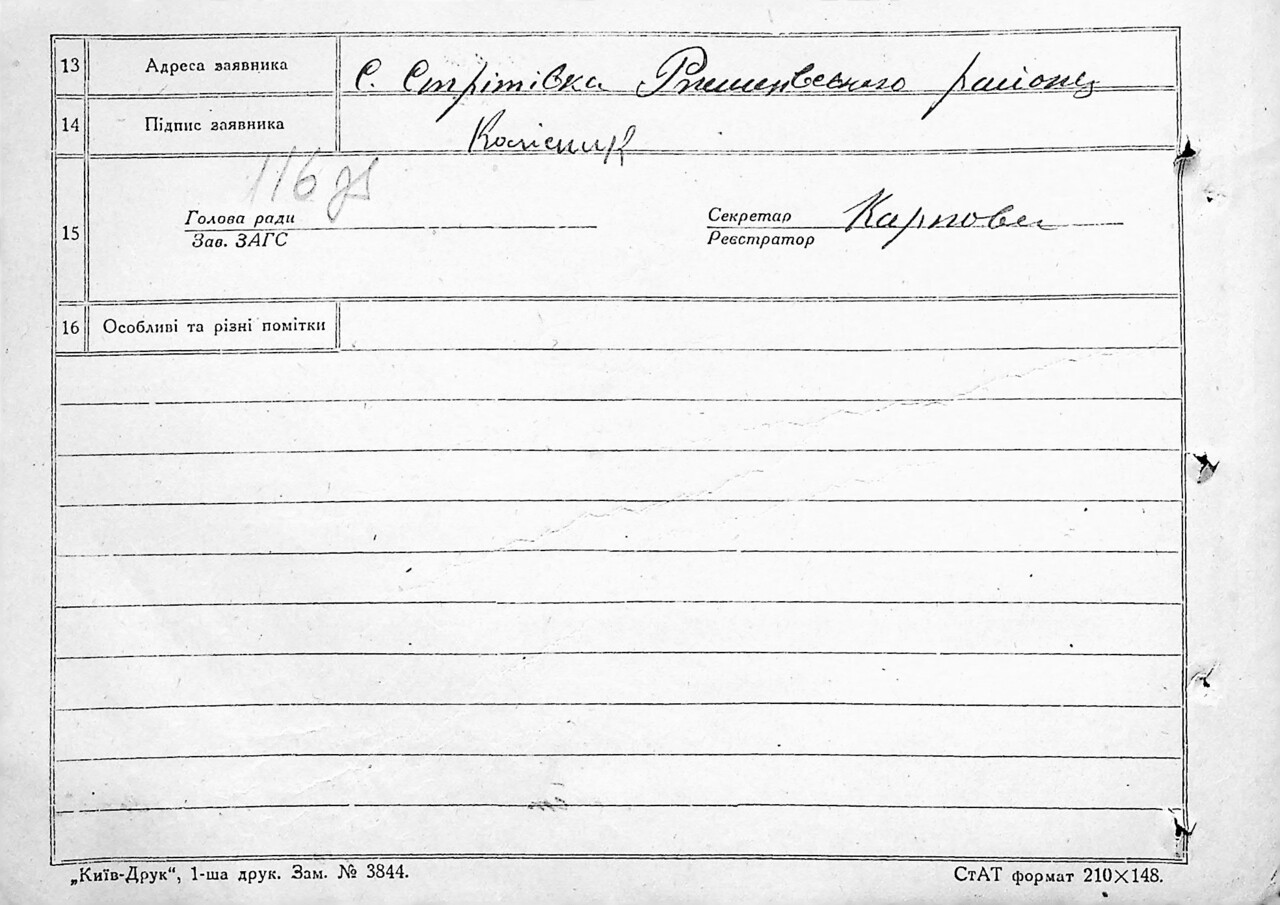 13 Адреса заявника С. Стрітівка Ржищівського району
14 Підпис заявника Колісник
116
Голова ради Секретар
15 Зав. ЗАГС Реєстратор
16 Особливі та різні помітки
„Київ-Друк“, 1-ша друк. Зам. № 3844. СтАТ формат 210×148.